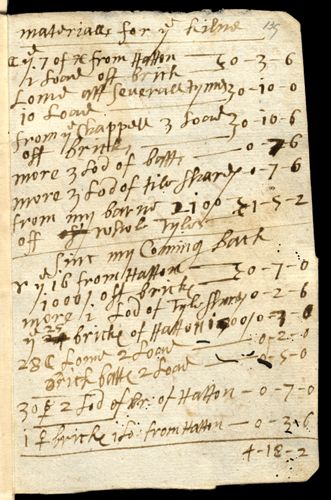 materialls for yᵉ kilne 135
yᵉ 7 of from Hatton
1 Load off brick 0-3-6
Lome att severall tymes
10 Load 0-10-0
from yᵉ Chappell 3 Load
off brick 0-10-6
more 3 Lod of batts 0-7-6
more 3 Lod of tile sheards 0-7-6
from my barne 2100
off whol Tyles 1-5-2
sinc my Coming back
yᵉ 16 from Hatton
1000 off bricke 0-7-0
more 1 Lod of Tyle sheards 0-2-6
yᵉ 25 bricke of Hatton 1000 0-7-0
28 Lome 2 Load 0-2-0
Brick batts 2 Load 0-5-0
30 2 Lod of br: of Hatton 0-7-0
1 bricke 1 Lo: from Hatton 0-3-6
4-18-2